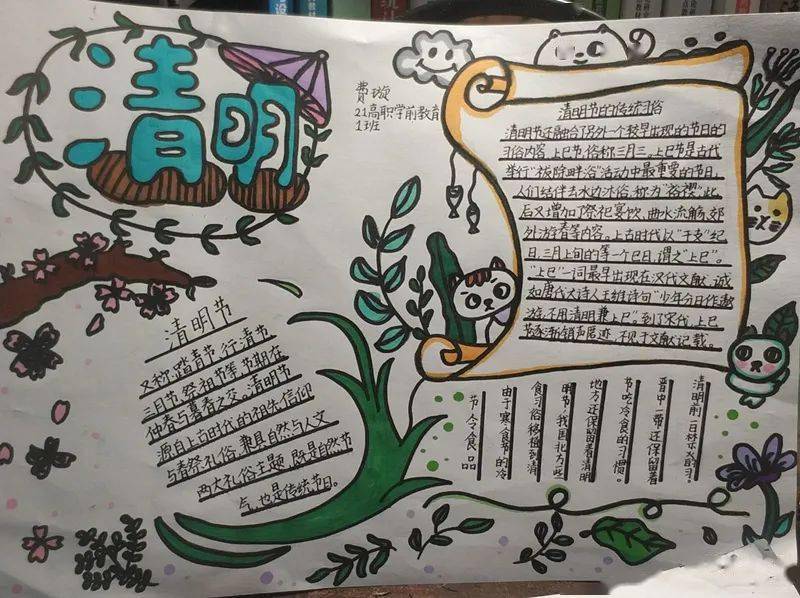 清明
费璇
21高职学前教育
1班
清明节的传统习俗
清明节还融合了另外一个较早出现的节日的
习俗内容。上巳节俗称三月三。上巳节是古代
举行“祓除畔浴”活动中最重要的节日。
人们结伴去水边沐浴,称为“浴禊”此
后又增加了祭祀宴饮、曲水流觞、郊
外游春等内容。上古时代以“干支”纪
日,三月上旬的第一个巳日,谓之“上巳”。
“上巳”一词最早出现在汉代文献,诚
如唐代大诗人王维诗句“少年分日作遨
游,不用清明兼上巳”。到了宋代,上巳
节逐渐销声匿迹,不见于文献记载。
清明节
又称踏青节、行清节、
三月节、祭祖节等,节期在
仲春与暮春之交。清明节
源自上古时代的祖先信仰
与春祭礼俗,兼具自然与人文
两大礼俗主题,既是自然节
气,也是传统节日。
清明前一日禁火的习。
晋中一带还保留着
节吃冷食的习惯。
地方还保留着清明
明节,我国北方一些
食习俗移植到清
由于寒食节的冷
节令食品